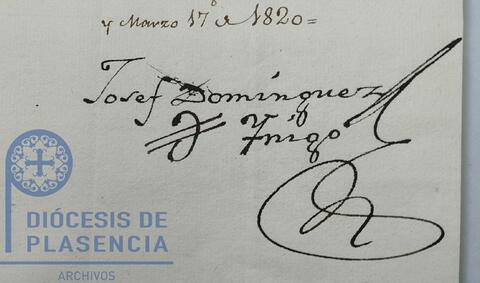 y Marzo 17 de 1820=
Josef Domínguez
Yñigo
DIÓCESIS DE
PLASENCIA
ARCHIVOS